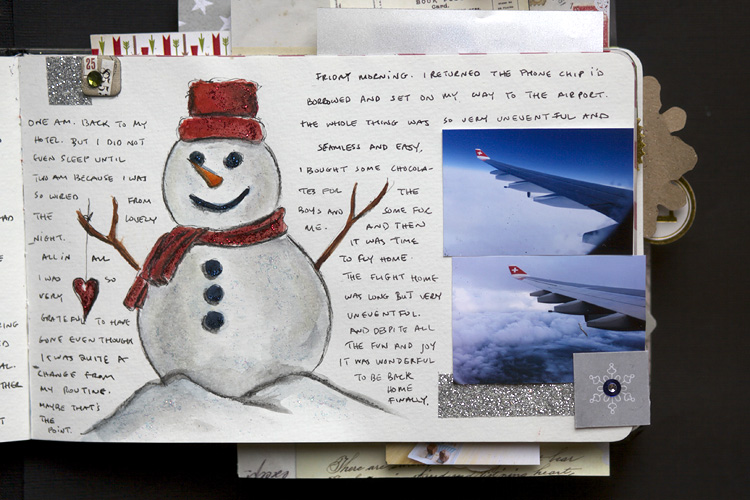 25
ONE AM. BACK TO MY
HOTEL. BUT I DID NOT
EVEN SLEEP UNTIL
TWO AM BECAUSE I WAS
SO WIRED FROM
THE LOVELY
NIGHT.
ALL IN ALL
I WAS SO
VERY
GRATEFUL TO HAVE
GONE EVEN THOUGH
IT WAS QUITE A
CHANGE FROM
MY ROUTINE.
MAYBE THAT'S
THE
POINT.
FRIDAY MORNING. I RETURNED THE PHONE CHIP I'D
BORROWED AND SET ON MY WAY TO THE AIRPORT.
THE WHOLE THING WAS SO VERY UNEVENTFUL AND
SEAMLESS AND EASY,
I BOUGHT SOME CHOCOLA-
TES FOR THE
BOYS AND SOME FOR
ME. AND THEN
IT WAS TIME
TO FLY HOME.
THE FLIGHT HOME
WAS LONG BUT VERY
UNEVENTFUL.
AND DESPITE ALL
THE FUN AND JOY
IT WAS WONDERFUL
TO BE BACK
HOME
FINALLY.
There are